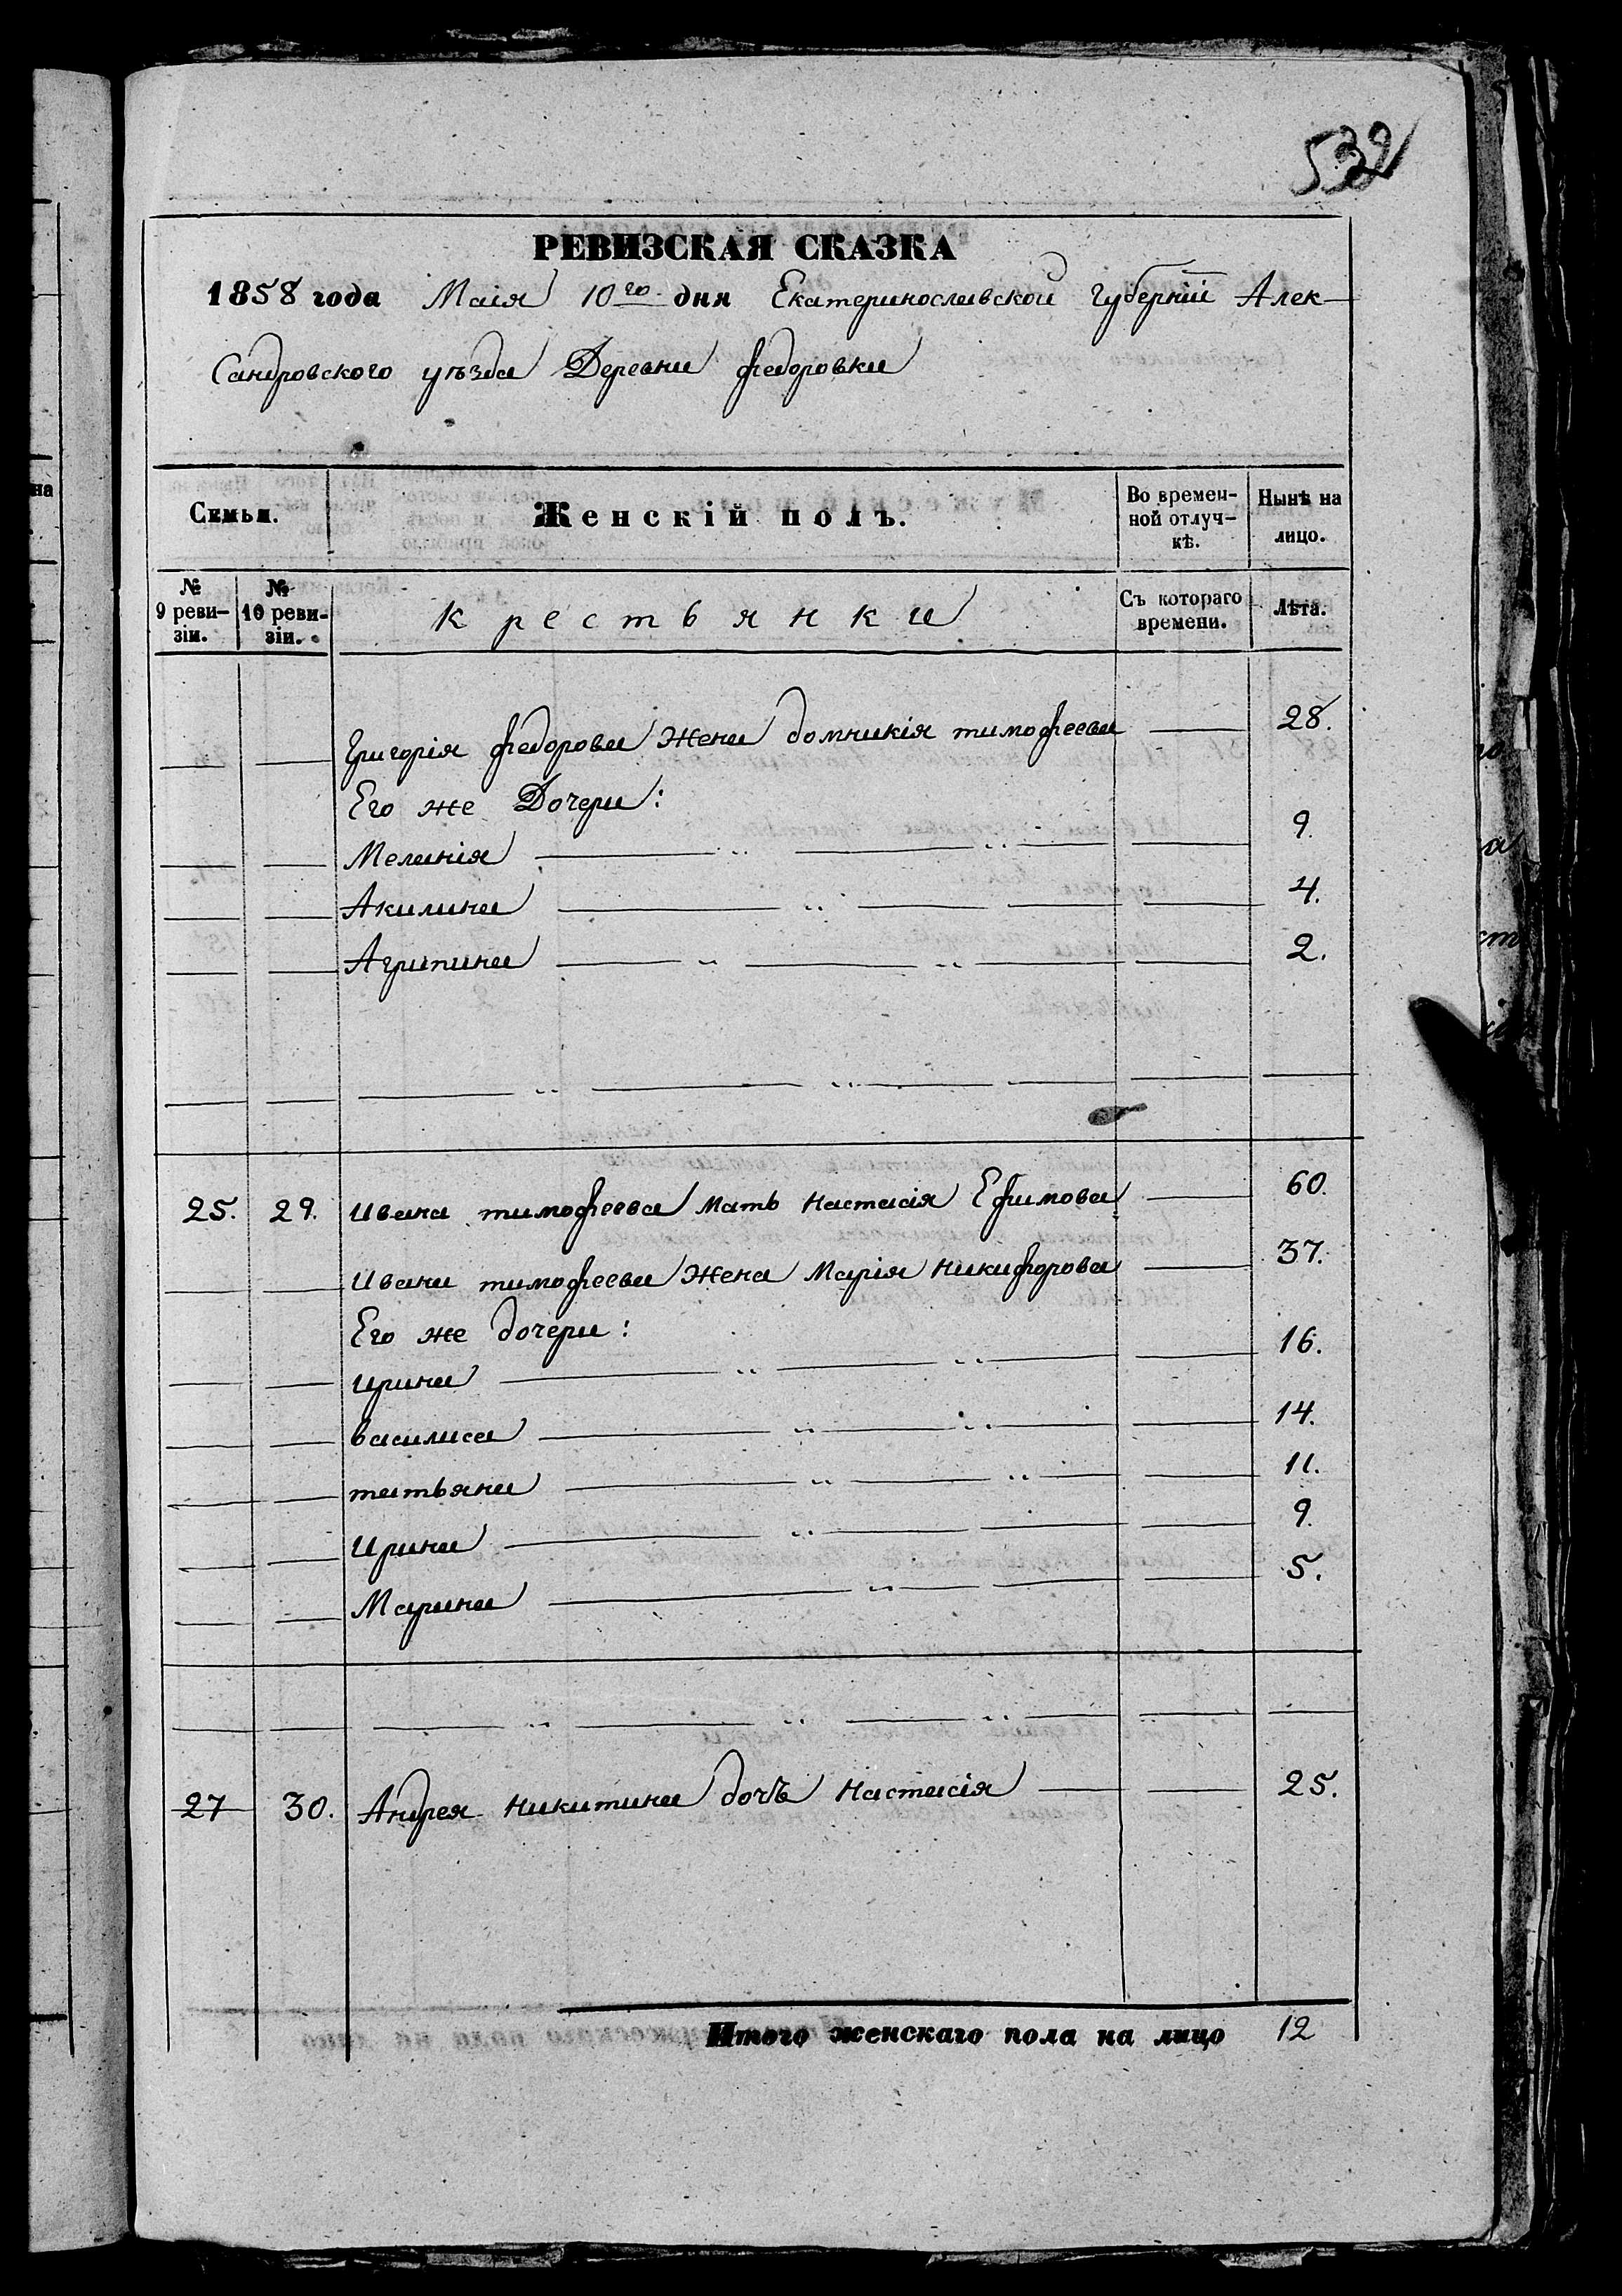 РЕВИЗСКАЯ СКАЗКА
1858 года Маія 10го дня Екатеринославской Губерніи Алек-
Сандровского уѣзда Деревни Федоровки
Семьи.
Женскій полъ.
Во времен-
ной отлуч-
кѣ.
Нынѣ на
лицо.
№
9 реви-
зіи.
№
10 реви-
зіи.
Крестьянки
Съ котораго
времени.
Лѣта.
Григорія Федорова Жена домникія тимофеева 28.
Его же Дочери:
Меланія 9.
Акилина 4.
Агрипина 2.
25. 29. Ивана тимофеева Мать Настасія Ефимова 60.
Ивана тимофеева Жена Марія Никифорова 37.
Его же дочери:
Ирина 16.
василиса 14.
татьяна 11.
Ирина 9.
Марина 5.
27 30. Андрея Никитина дочь Настасія 25.
Итого женскаго пола на лицо 12